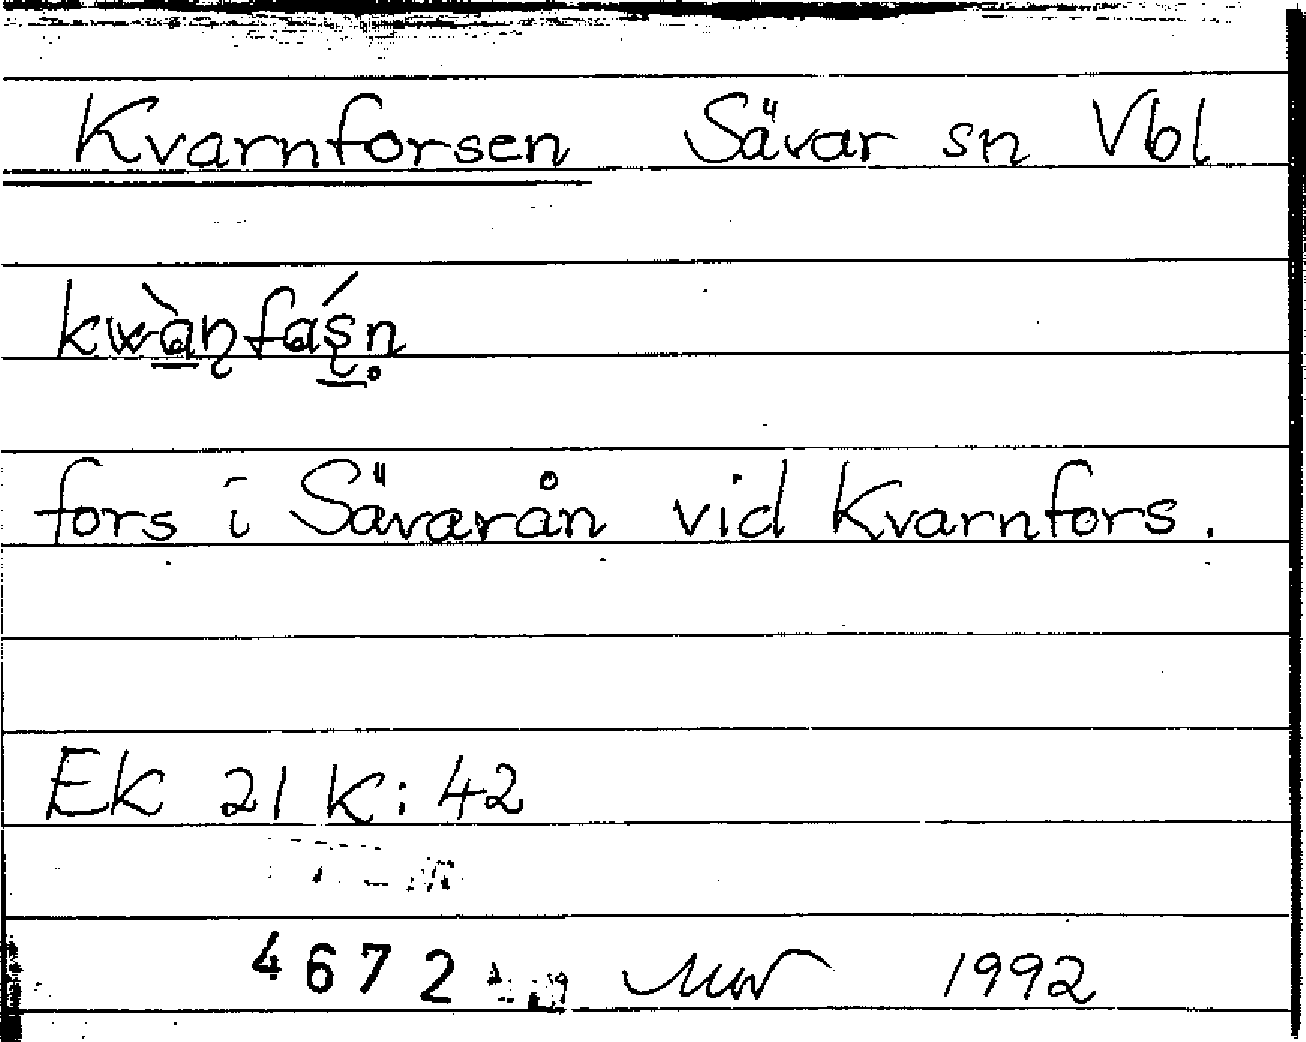 Kvarnforsen Sävar sn Vbl
kwàṇfáṣn̥
fors i Sävarån vid Kvarnfors.
Ek 21 K: 42
4672 1992